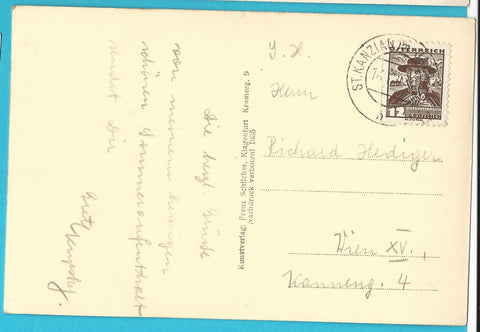 Die herzl. Grüße
von meinem heurigen
schönen Sommeraufenthalt
sendet Dir
Kunstverlag: Franz Schilcher, Klagenfurt Kramerg. 9
Nachdruck verboten! 1935
S. H.
Herrn
Richard Hediger
Wien XV.,
Kanneng. 4
ST. KANZIAN
ÖSTERREICH
12
GROSCHEN